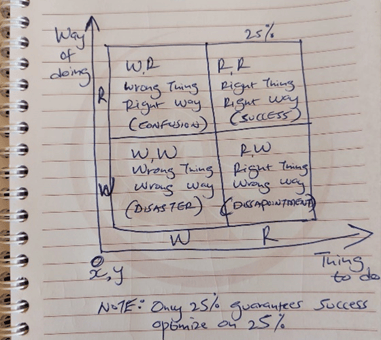 Way of doing
25%
R
W,R
Wrong Thing
Right Way
(CONFUSION)
R,R
Right Thing
Right Way
(SUCCESS)
W
W,W
Wrong Thing
Wrong Way
(DISASTER)
R,W
Right Thing
Wrong Way
(DISSAPOINTMENT)
W
R
x,y
Thing to do
NOTE: Only 25% guarantees Success
optimize on 25%